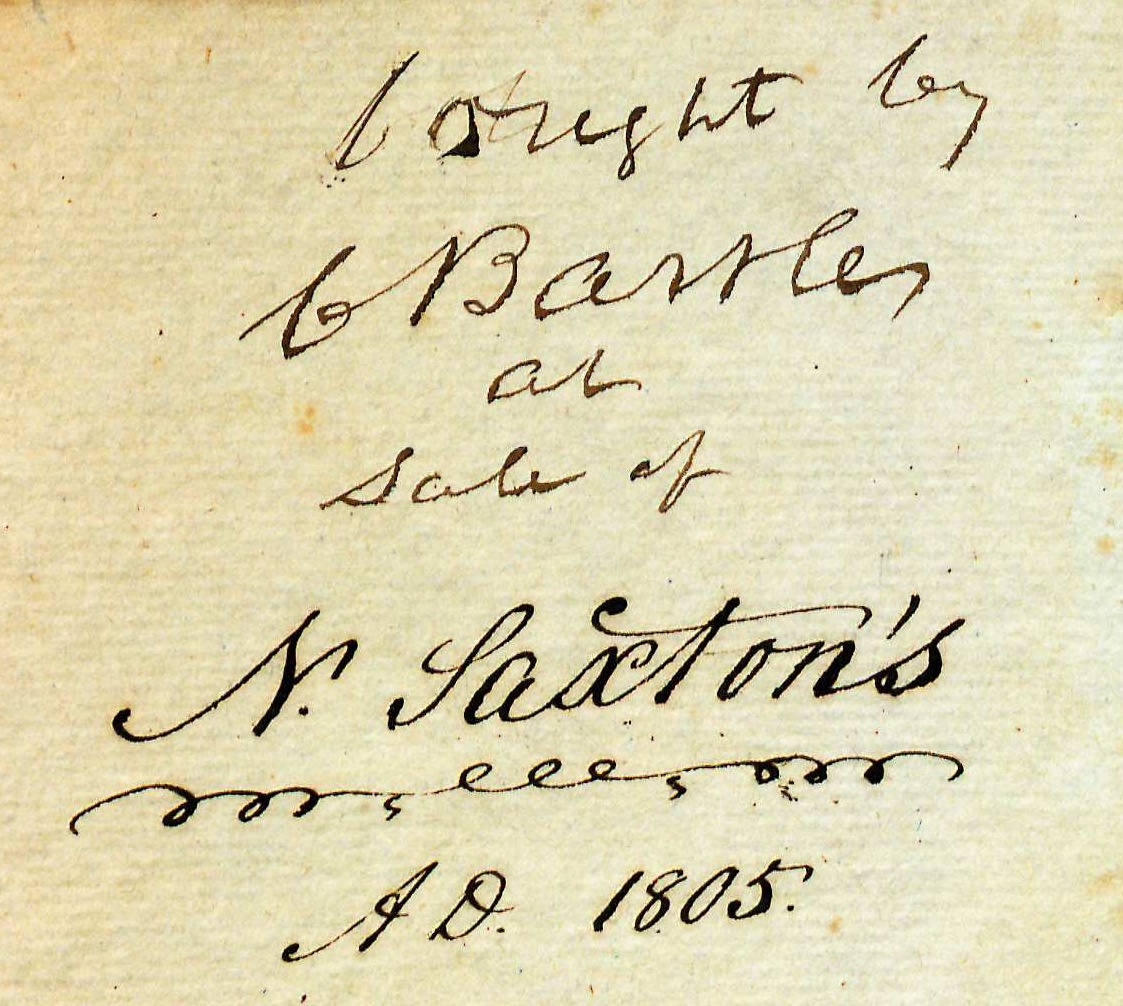 bought by
C Bartles
at
sale of
N. Saxton's
A D. 1805.